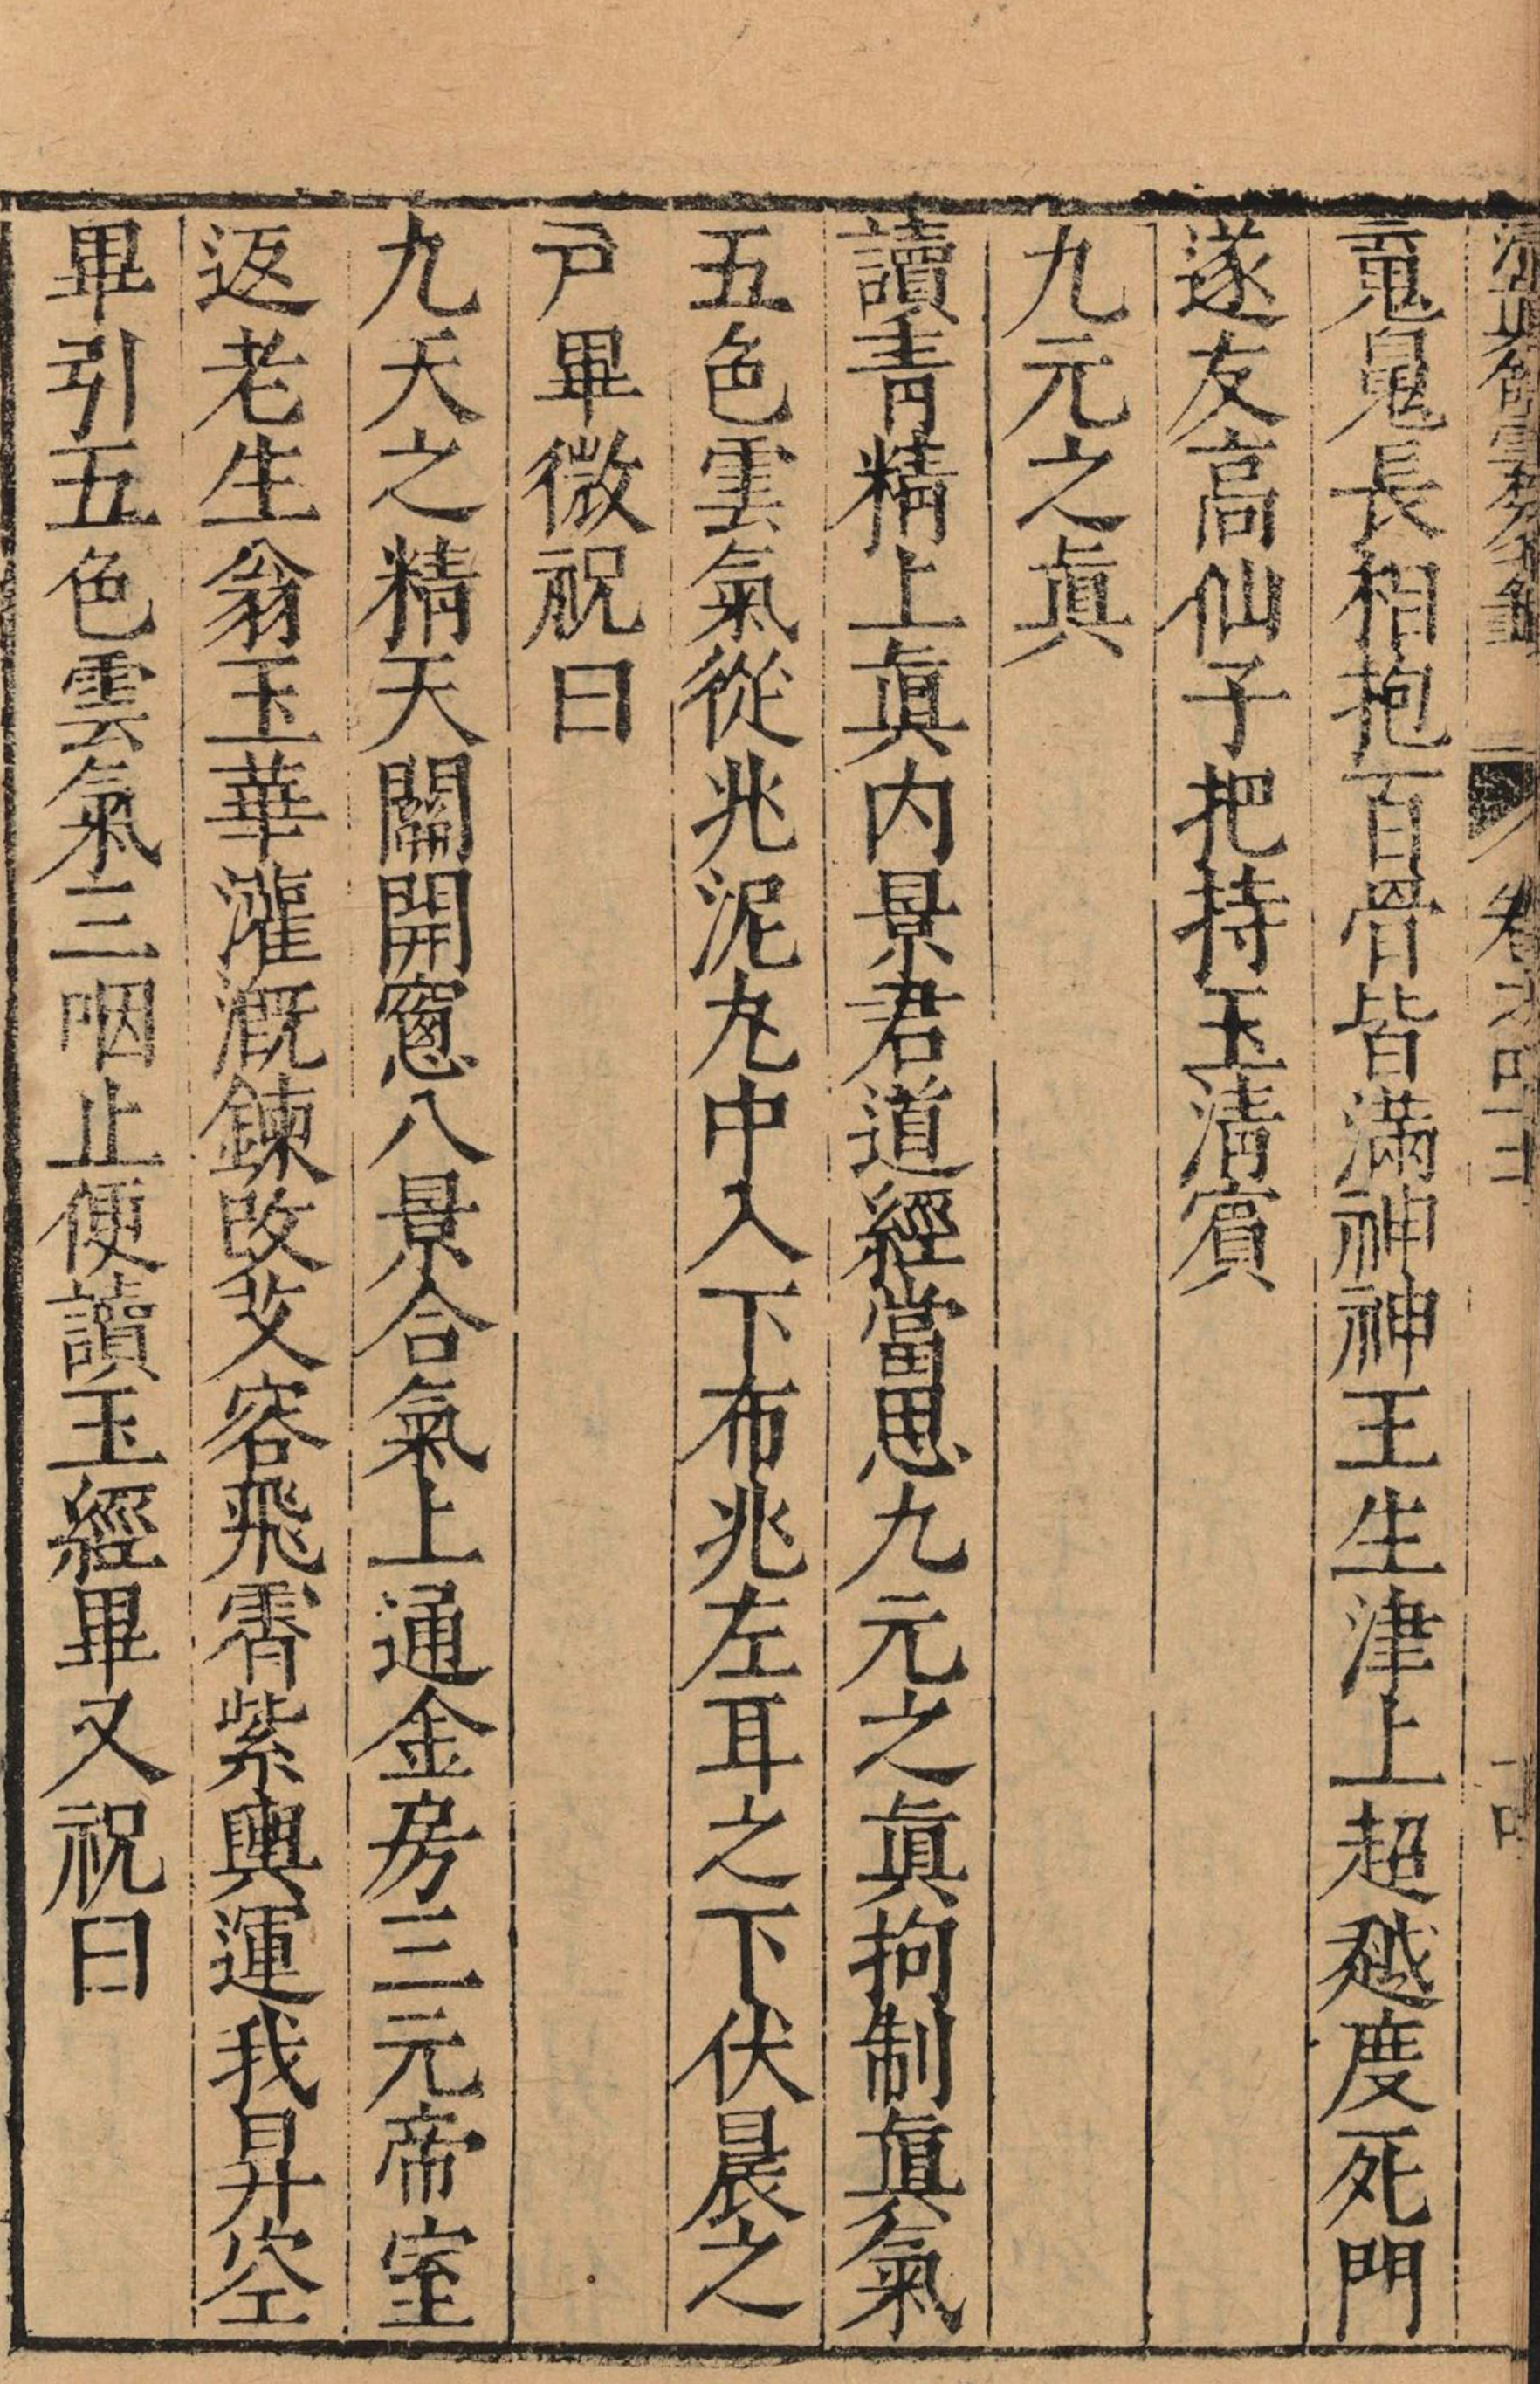 清真館雲笈七籤 卷之四十二 十四
䰟鬼長相抱百骨皆滿神神王生津上超越度死門
遂友高仙子把持玉清賓
九元之真
讀青精上真内景君道經當思九元之真拘制真氣
五色雲氣從兆泥丸中入下布兆左耳之下伏晨之
戶畢微祝曰
九天之精天關開窻八景合氣上通金房三元帝室
返老生翁玉華灌溉鍊改艾容飛霄紫輿運我昇空
畢引五色雲氣三咽止便讀玉經畢又祝曰